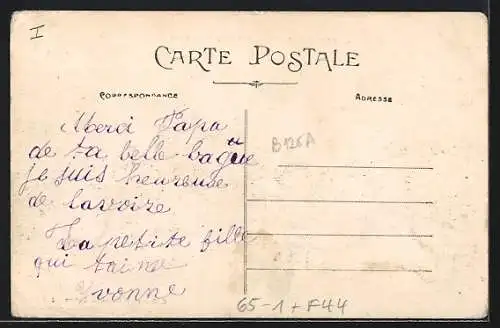 I
CARTE POSTALE
CORRESPONDANCE
ADRESSE
Merci Papa
de ta belle bagüe
je suis heureuse
de lavoire
La petite fille
qui taime
Yvonne
B126A
65-1+F44